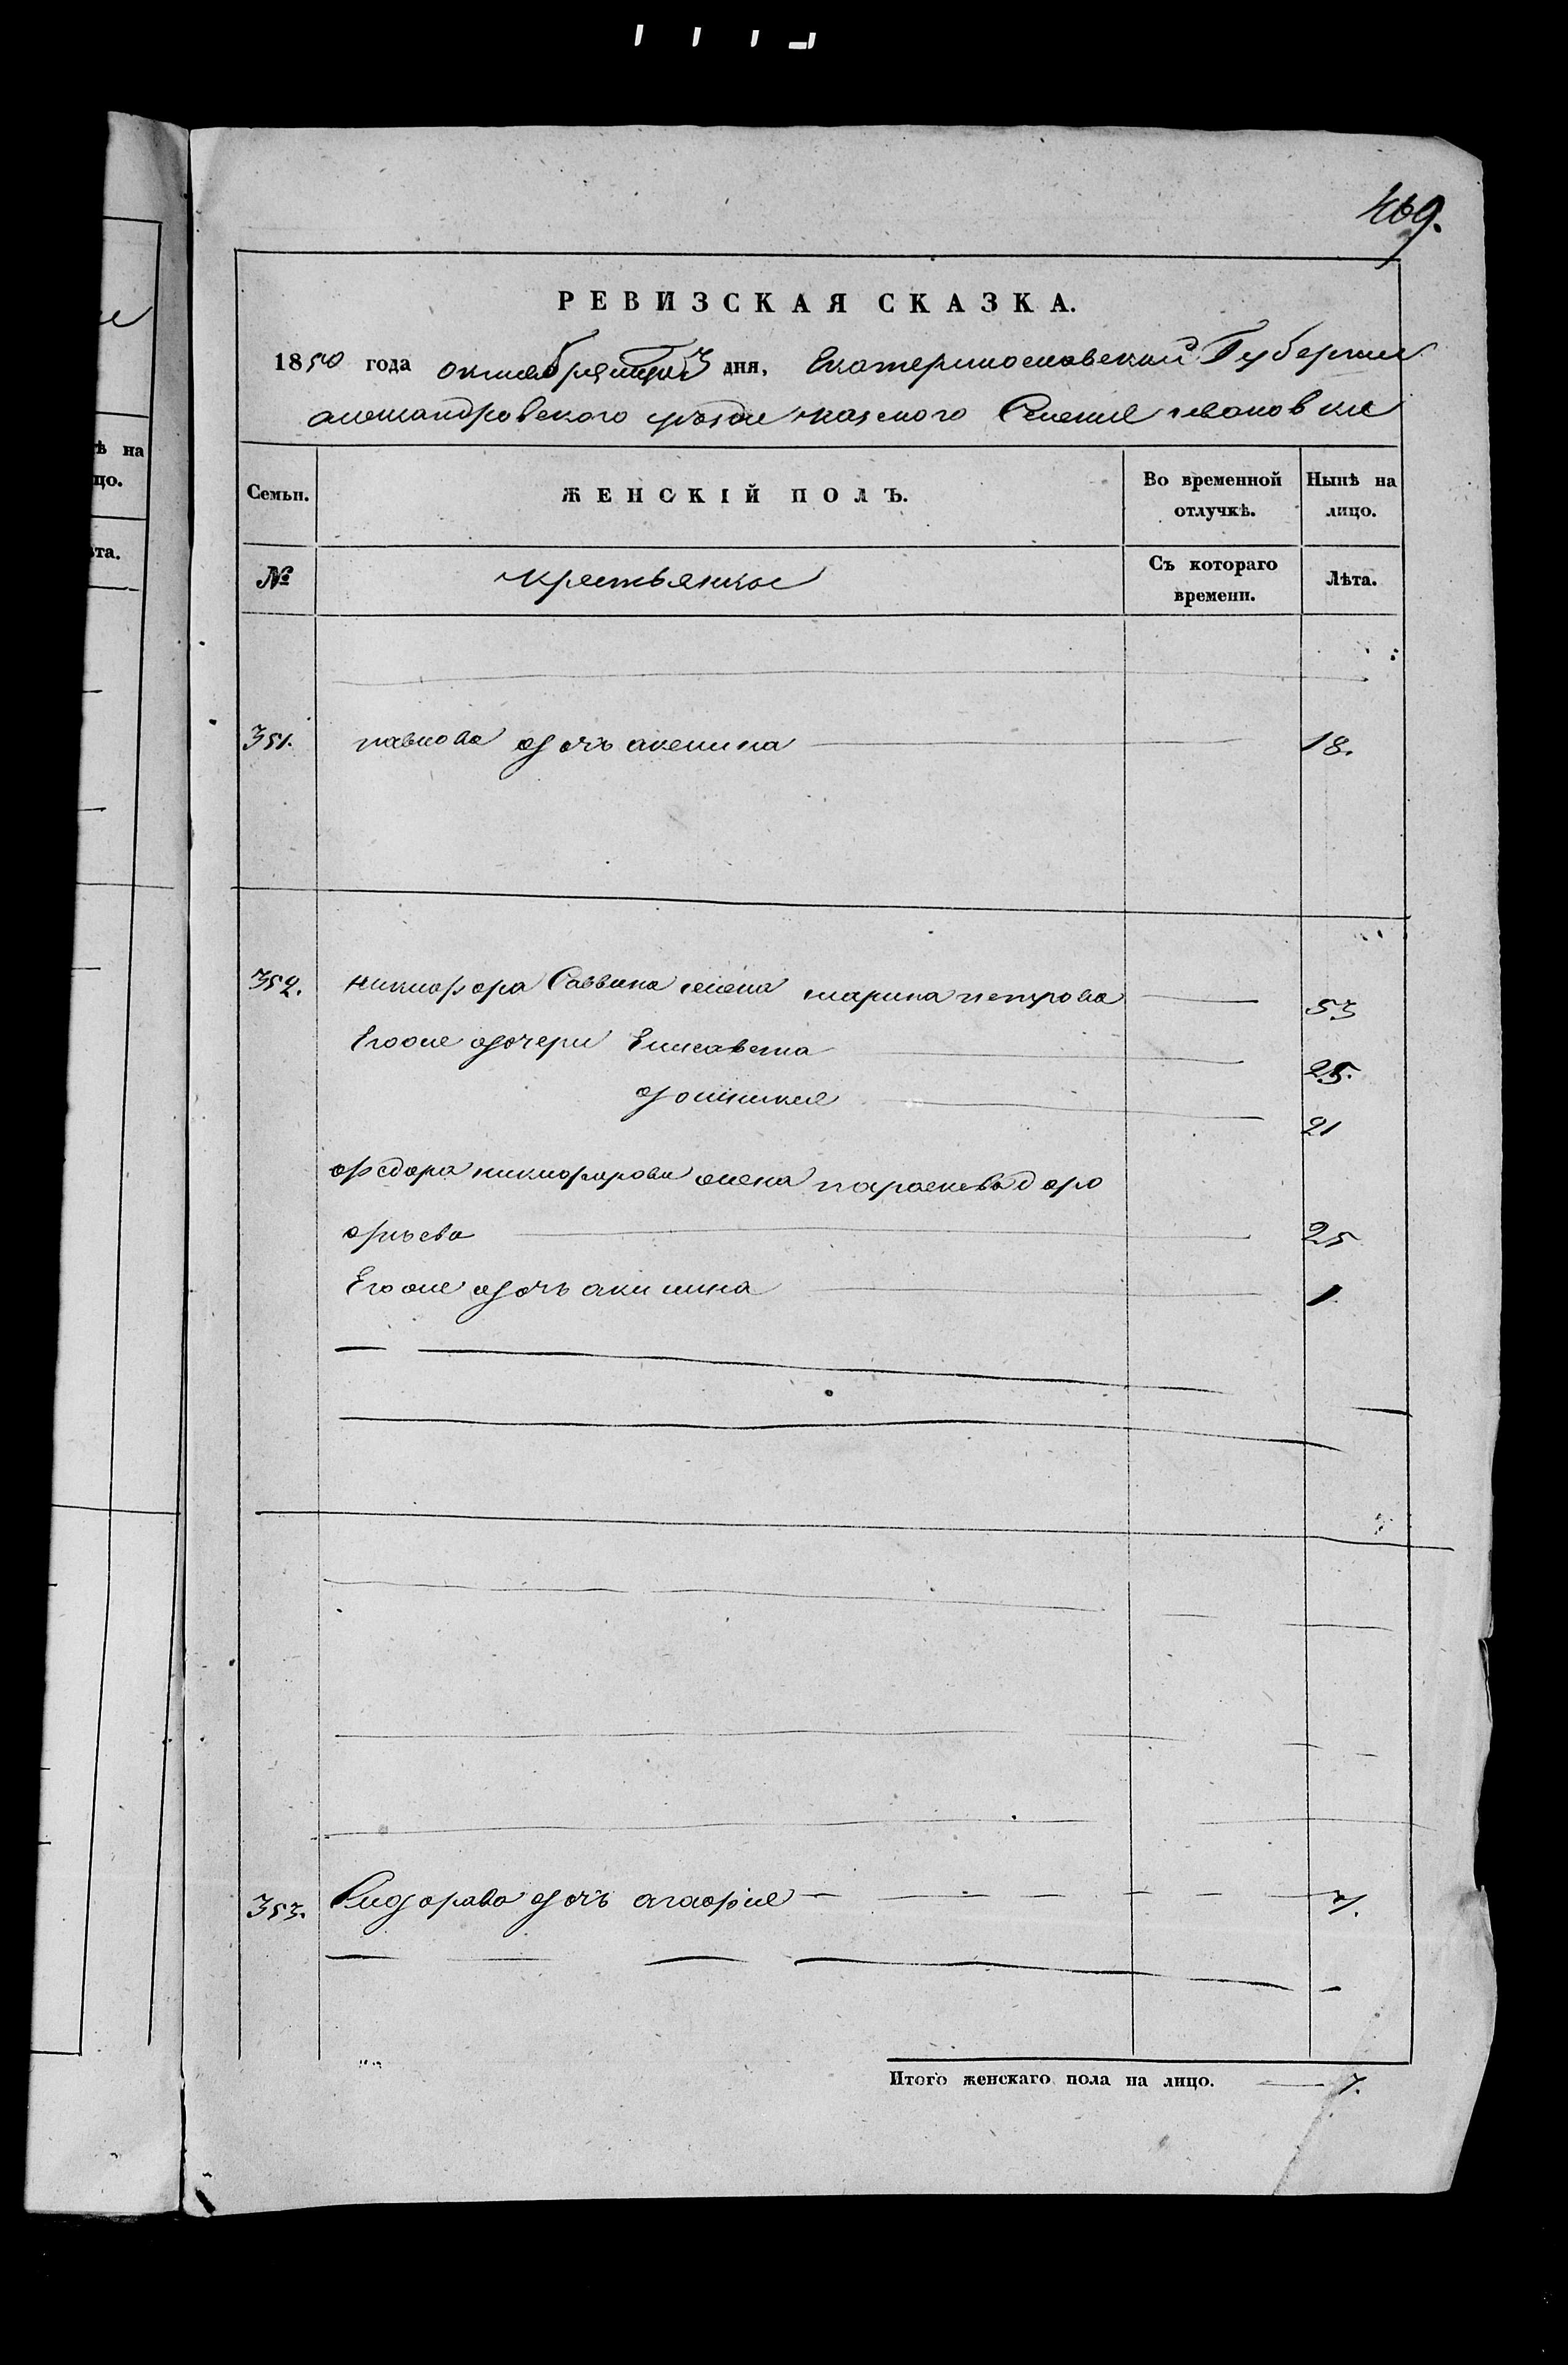 469.
РЕВИЗСКАЯ СКАЗКА.
1850 года октября дня, Екатеринославской Губернии
александровского уезда казеного Селения ивановки
Семьи. ЖЕНСКІЙ ПОЛЪ. Во временной отлучкѣ. Нынѣ на лицо.
№ крестьянкы Съ котораго времени. Лѣта.
351. павлова дочь акилина 18.
352. никифора Саввина жена марина петрова 53
Егоже дочери Елисавета 25.
21
федора никифорова жена параскева доро
фиева 25
Егоже дочь акилина 1
353. Сидорова дочь агафия
Итого женскаго пола на лицо. 7.
ѣ на
цо.
ѣта.